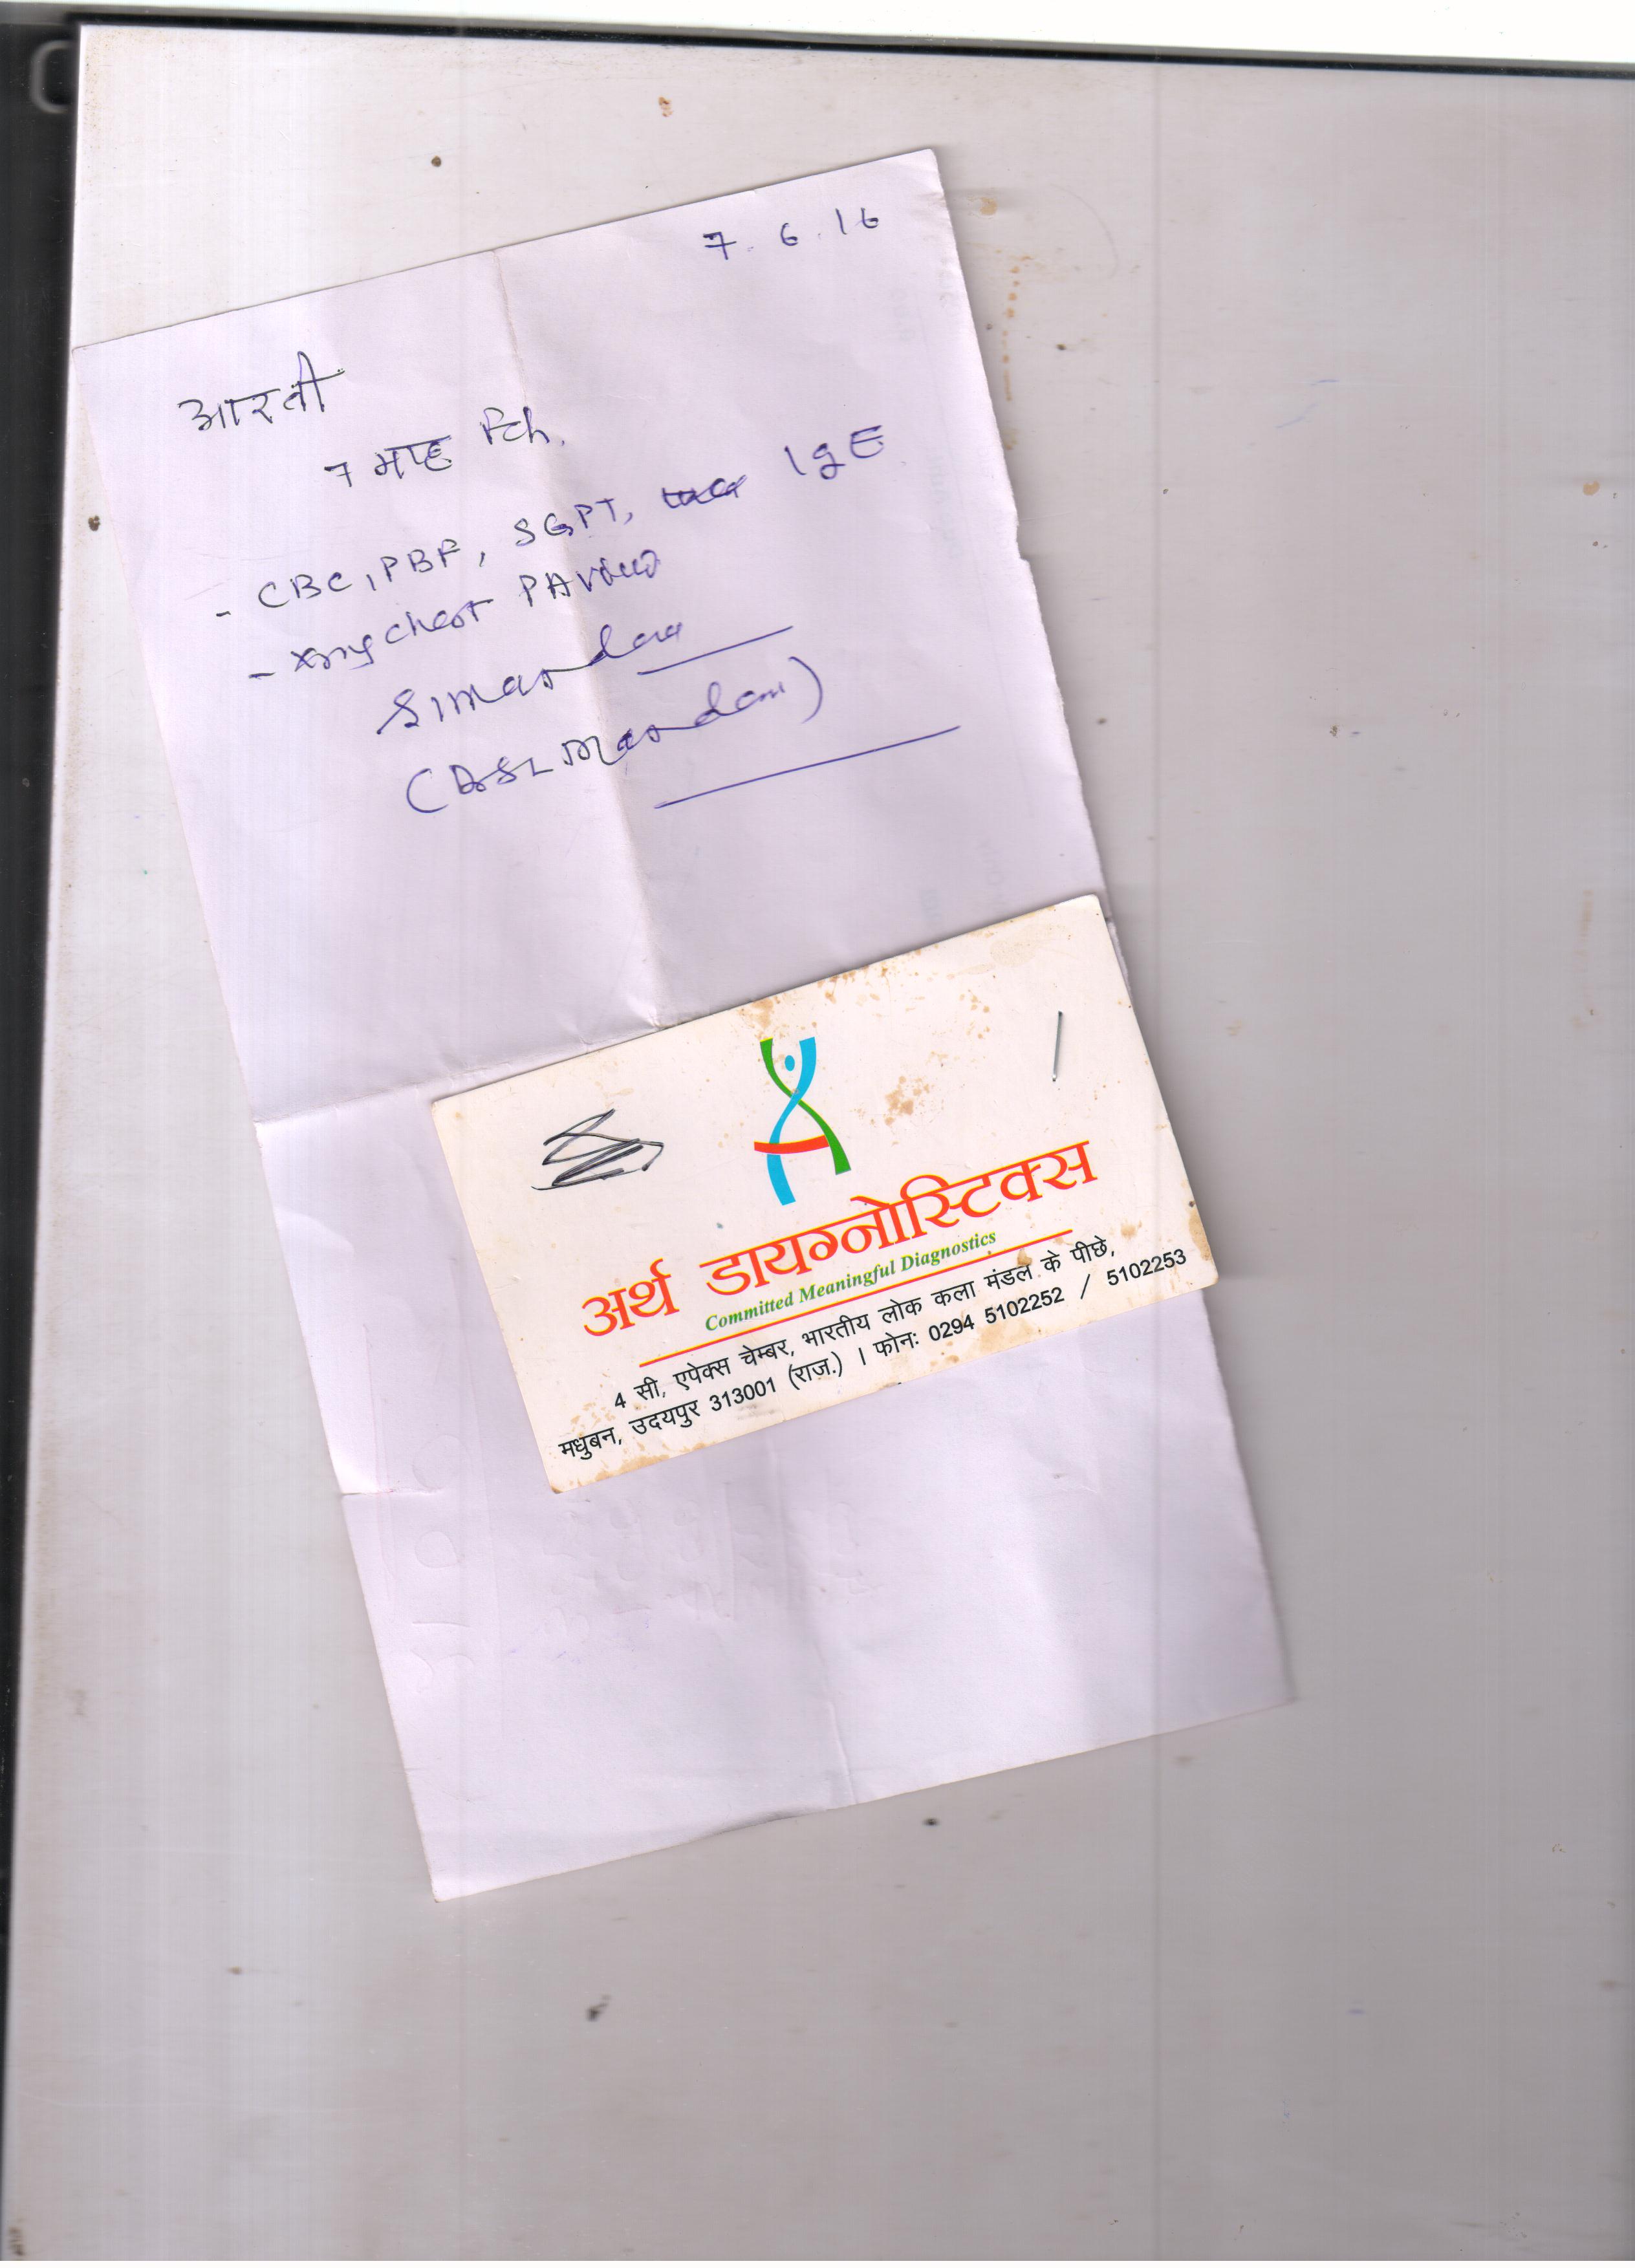 7.6.16
आरती
7 माह Fch.
- CBC, PBF, SGPT, IgE
- Xray chest PA view
SlMandar
(Dr SL Mandar)
अर्थ डायग्नोस्टिक्स
Committed Meaningful Diagnostics
4 सी, एपेक्स चेम्बर, भारतीय लोक कला मंडल के पीछे,
मधुबन, उदयपुर 313001 (राज.) । फोन: 0294 5102252 / 5102253